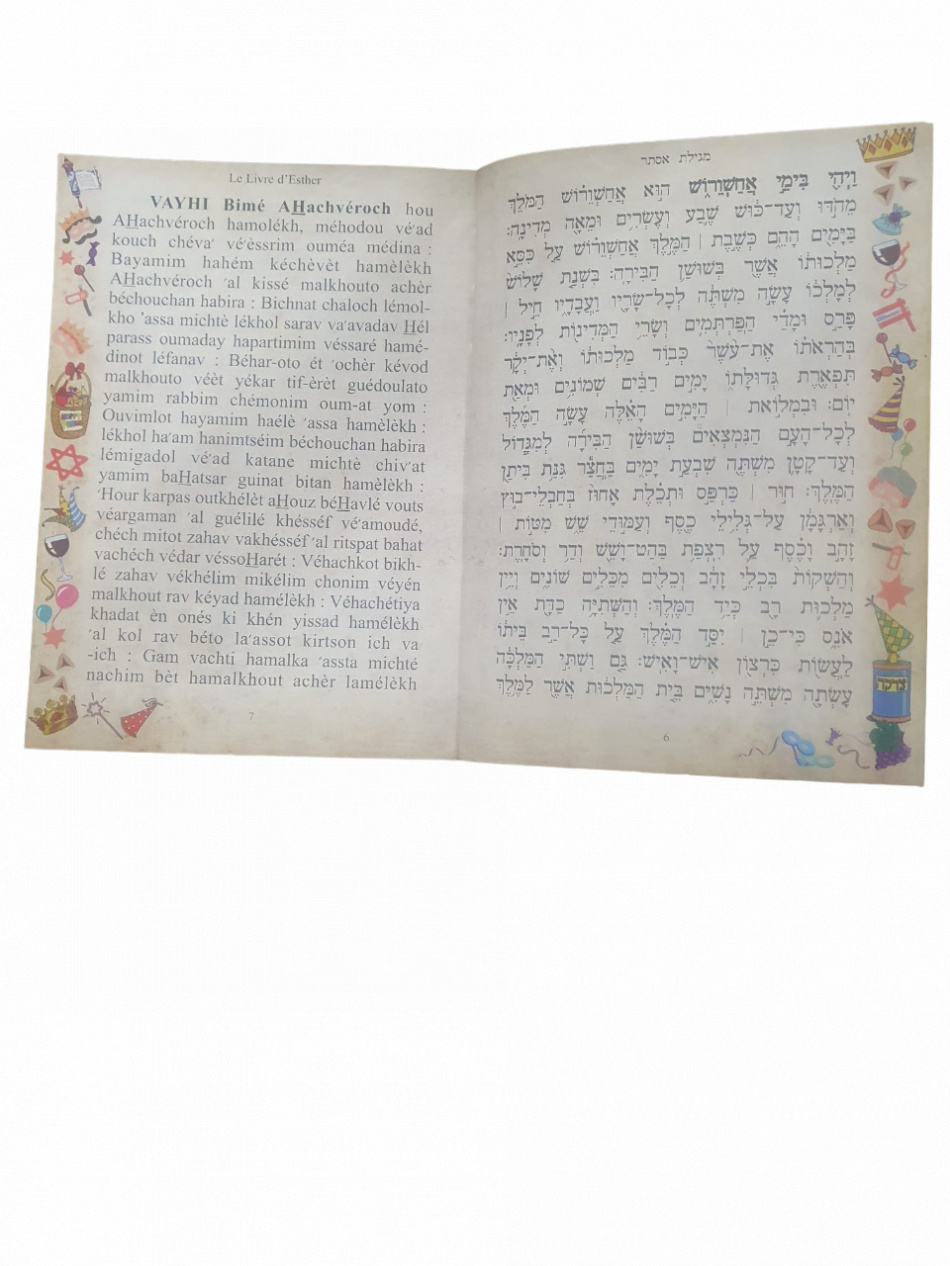 Le Livre d'Esther
VAYHI Bimé AHachvéroch hou
AHachvéroch hamolékh, méhodou véʻad
kouch chévaʻ véʻèssrim ouméa médina :
Bayamim hahém kéchèvèt hamèlèkh
AHachvéroch ʻal kissé malkhouto achèr
béchouchan habira : Bichnat chaloch lémol-
kho ʻassa michtè lékhol sarav vaʻavadav Hél
parass oumaday hapartimim véssaré hamé-
dinot léfanav : Béhar-oto ét ʻochèr kévod
malkhouto véèt yékar tif-èrèt guédoulato
yamim rabbim chémonim oum-at yom :
Ouvimlot hayamim haélè ʻassa hamèlèkh :
lékhol haʻam hanimtséim béchouchan habira
lémigadol véʻad katane michtè chivʻat
yamim baHatsar guinat bitan hamèlèkh :
ʻHour karpas outkhélèt aHouz béHavlé vouts
véargaman ʻal guélilé khésséf véʻamoudé,
chéch mitot zahav vakhésséf ʻal ritspat bahat
vachéch védar véssoHarét : Véhachkot bikh-
lé zahav vékhélim mikélim chonim véyén
malkhout rav kéyad hamélèkh : Véhachétiya
khadat èn onés ki khén yissad hamélèkh
ʻal kol rav béto laʻassot kirtson ich va
-ich : Gam vachti hamalka ʻassta michté
nachim bèt hamalkhout achèr lamélèkh
7
מגילת אסתר
וַיְהִ֖י בִּימֵ֣י אֲחַשְׁוֵר֑וֹשׁ ה֣וּא אֲחַשְׁוֵר֗וֹשׁ הַמֹּלֵךְ֙
מֵהֹ֣דּוּ וְעַד־כּ֔וּשׁ שֶׁ֛בַע וְעֶשְׂרִ֥ים וּמֵאָ֖ה מְדִינָֽה׃
בַּיָּמִ֖ים הָהֵ֑ם כְּשֶׁ֣בֶת | הַמֶּ֣לֶךְ אֲחַשְׁוֵר֗וֹשׁ עַ֚ל כִּסֵּ֣א
מַלְכוּת֔וֹ אֲשֶׁ֖ר בְּשׁוּשַׁ֥ן הַבִּירָֽה׃ בִּשְׁנַ֤ת שָׁלוֹשׁ֙
לְמָלְכ֔וֹ עָשָׂ֣ה מִשְׁתֶּ֔ה לְכָל־שָׂרָ֖יו וַעֲבָדָ֑יו חֵ֣יל |
פָּרַ֣ס וּמָדַ֗י הַֽפַּרְתְּמִ֛ים וְשָׂרֵ֥י הַמְּדִינ֖וֹת לְפָנָֽיו׃
בְּהַרְאֹת֗וֹ אֶת־עֹ֙שֶׁר֙ כְּב֣וֹד מַלְכוּת֔וֹ וְאֶ֨ת־יְקָ֔ר
תִּפְאֶ֖רֶת גְּדוּלָּת֑וֹ יָמִ֣ים רַבִּ֔ים שְׁמוֹנִ֥ים וּמְאַ֖ת
יֽוֹם׃ וּבִמְל֣וֹאת | הַיָּמִ֣ים הָאֵ֗לֶּה עָשָׂ֣ה הַמֶּ֡לֶךְ
לְכָל־הָעָ֣ם הַנִּמְצְאִים֩ בְּשׁוּשַׁ֨ן הַבִּירָ֜ה לְמִגָּ֧דוֹל
וְעַד־קָטָ֛ן מִשְׁתֶּ֖ה שִׁבְעַ֣ת יָמִ֑ים בַּחֲצַ֕ר גִּנַּ֥ת בִּיתַ֖ן
הַמֶּֽלֶךְ׃ ח֣וּר | כַּרְפַּ֣ס וּתְכֵ֗לֶת אָחוּז֙ בְּחַבְלֵי־ב֣וּץ
וְאַרְגָּמָ֔ן עַל־גְּלִ֥ילֵי כֶ֖סֶף וְעַמּ֣וּדֵי שֵׁ֑שׁ מִטּ֣וֹת |
זָהָ֣ב וָכֶ֗סֶף עַ֛ל רִֽצְפַ֥ת בַּהַט־וָשֵׁ֖שׁ וְדַ֥ר וְסֹחָֽרֶת׃
וְהַשְׁקוֹת֙ בִּכְלֵ֣י זָהָ֔ב וְכֵלִ֖ים מִכֵּלִ֣ים שׁוֹנִ֑ים וְיֵ֥ין
מַלְכ֛וּת רָ֖ב כְּיַ֥ד הַמֶּֽלֶךְ׃ וְהַשְּׁתִיָּ֥ה כַדָּ֖ת אֵ֣ין
אֹנֵ֑ס כִּי־כֵ֣ן | יִסַּ֣ד הַמֶּ֗לֶךְ עַ֚ל כָּל־רַ֣ב בֵּית֔וֹ
לַעֲשׂ֖וֹת כִּרְצ֥וֹן אִישׁ־וָאִֽישׁ׃ גַּ֚ם וַשְׁתִּ֣י הַמַּלְכָּ֔ה
עָשְׂתָ֖ה מִשְׁתֵּ֣ה נָשִׁ֑ים בֵּ֚ית הַמַּלְכ֔וּת אֲשֶׁ֖ר לַמֶּ֥לֶךְ
6
צדקה